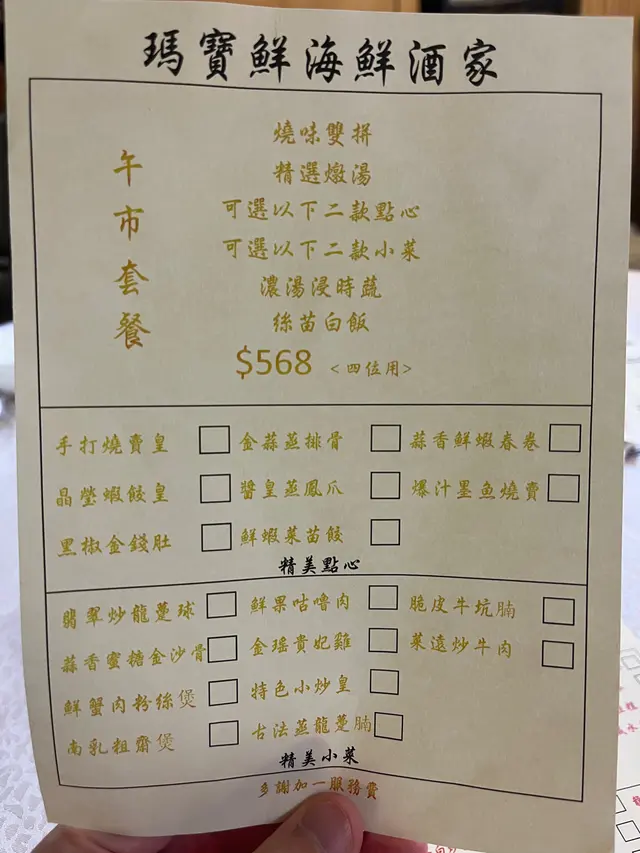 瑪寶鮮海鮮酒家
午市套餐
燒味雙拼
精選燉湯
可選以下二款點心
可選以下二款小菜
濃湯浸時蔬
絲苗白飯
$568 <四位用>
手打燒賣皇 金蒜蒸排骨 蒜香鮮蝦春卷
晶瑩蝦餃皇 醬皇蒸鳳爪 爆汁墨魚燒賣
黑椒金錢肚 鮮蝦菜苗餃
精美點心
翡翠炒龍躉球 鮮果咕嚕肉 脆皮牛坑腩
蒜香蜜糖金沙骨 金瑤貴妃雞 菜遠炒牛肉
鮮蟹肉粉絲煲 特色小炒皇
南乳粗齋煲 古法蒸龍躉腩
精美小菜
多謝加一服務費